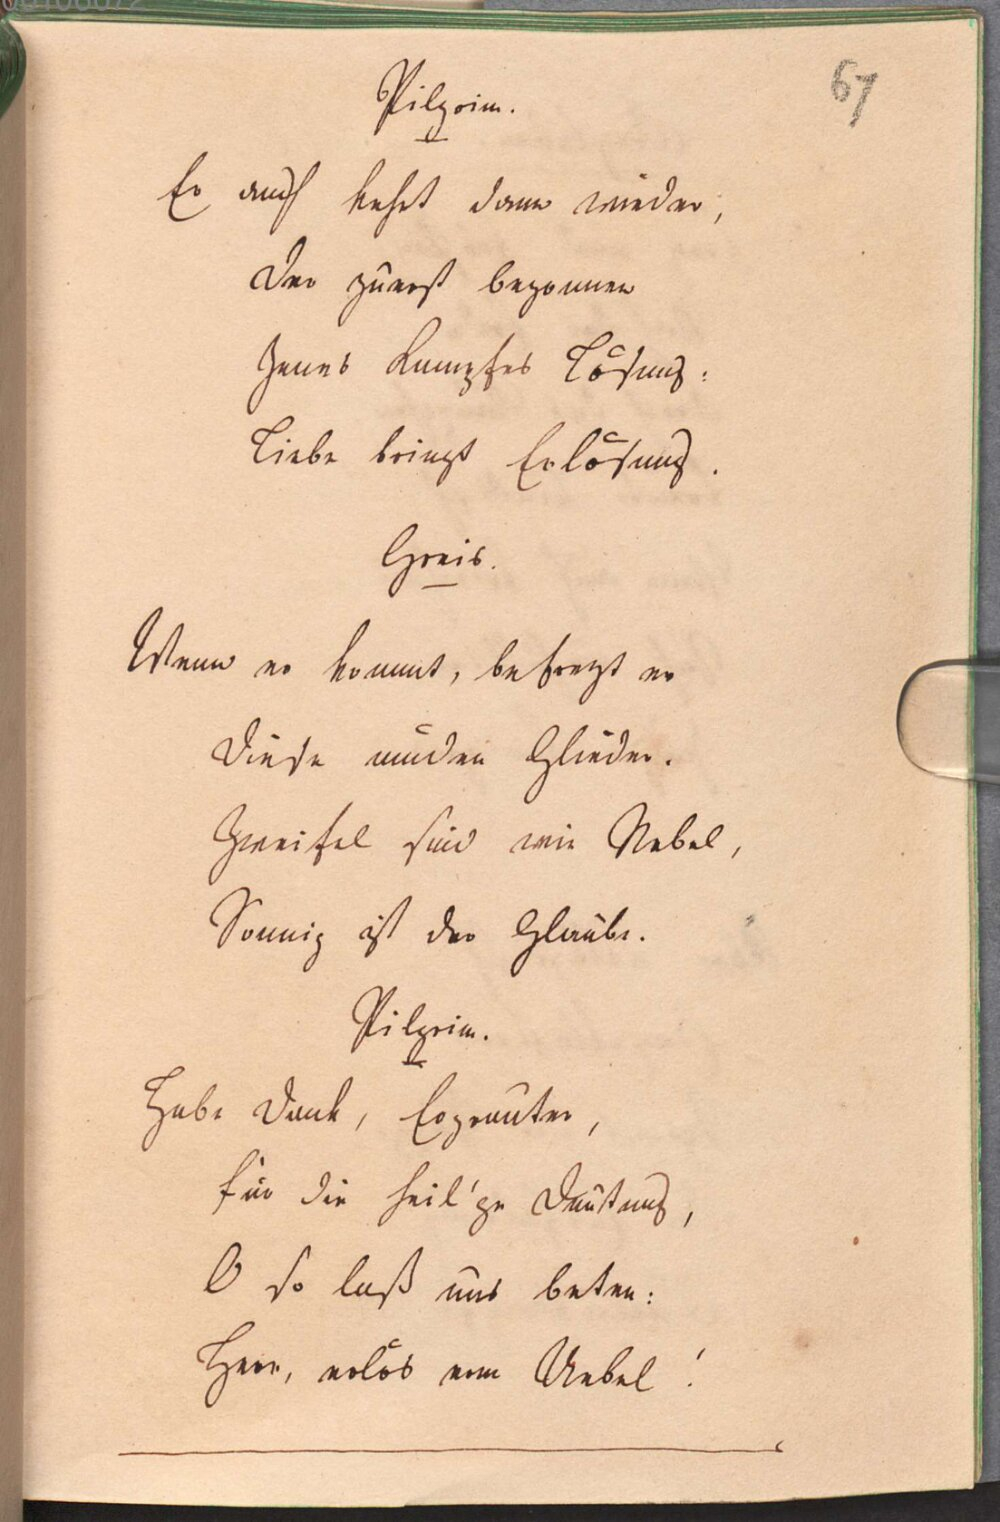 00108072
67
Pilgrim.
Er auch kehrt dann wieder,
Der zuerst begonnen
Jenes Kampfes Lösung:
Liebe bringt Erlösung.
Greis.
Wenn er kommt, befragt er
Diese müden Glieder.
Zweifel sind wie Nebel,
Sonnig ist der Glaube.
Pilgrim.
Habe Dank, Ergrauter,
für die heil'ge Deutung,
O so laß uns beten:
Herr, erlös vom Uebel!